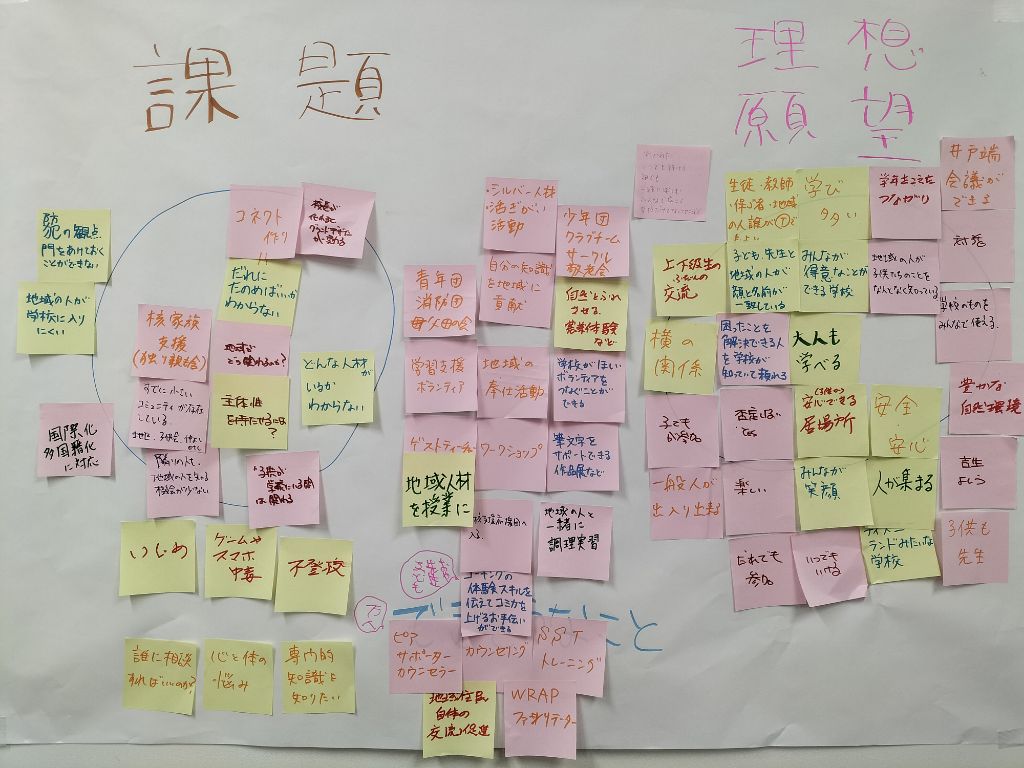 課題
理想
願望
防犯の観点
門をあけておく
ことができない
地域の人が
学校に入り
にくい
コネクト
作り
だれに
たのめばいいか
わからない
核家族
支援
(独り親含)
地域が
どう関わるのか?
主体性
を持たせるには
?
どんな人材が
いるか
わからない
すでに小さい
コミュニティが存在
している。
国際化
多国籍化
に対応
いじめ
ゲームや
スマホ
中毒
不登校
誰に相談
すればいいのか?
心と体の
悩み
専門的
知識を
知りたい
・シルバー人材
・活きがい
活動
少年団
クラブチーム
サークル
敬老会
青年団
消防団
母父田の会
自分の知識
を地域に
貢献
自然とふれ
させる。
農業体験
など
学習支援
ボランティア
地域の
奉仕活動
学校がほしい
ボランティアを
つなぐことが
できる
ゲストティーチャー
ワークショップ
筆文字を
サポートできる
作品展など
地域人材
を授業に
地域の人と
一緒に
調理実習
コーチングの
体験スキルを
伝えてコミカを
上げるお手伝い
ができる
こと
ピア
サポーター
カウンセラー
カウンセリング
SST
トレーニング
地域住民
自体の
交流促進
WRAP
ファシリテーター
生徒・教師
・保ゴ者・地域
の人誰が
学び
多い
学年をこえた
つながり
井戸端
会議が
できる
上下級生の
交流
子ども、先生と
地域の人が
顔と名前が
一致している
みんなが
得意なことが
できる学校
地域の人が
子供たちのことを
なんとなく知っている
対話
学校のものを
みんなで使える。
横の
関係
困ったことを
解決できる人
を学校が
知っていて頼れる
大人も
学べる
豊かな
自然環境
子ども
が参加
否定しない
安心できる
居場所
安全
・安心
一般人が
出入り出来る
楽しい
みんなが
笑顔
人が集まる
共生
共に
だれでも
参加
いつでも
いける
ランドみたいな
学校
子供も
先生